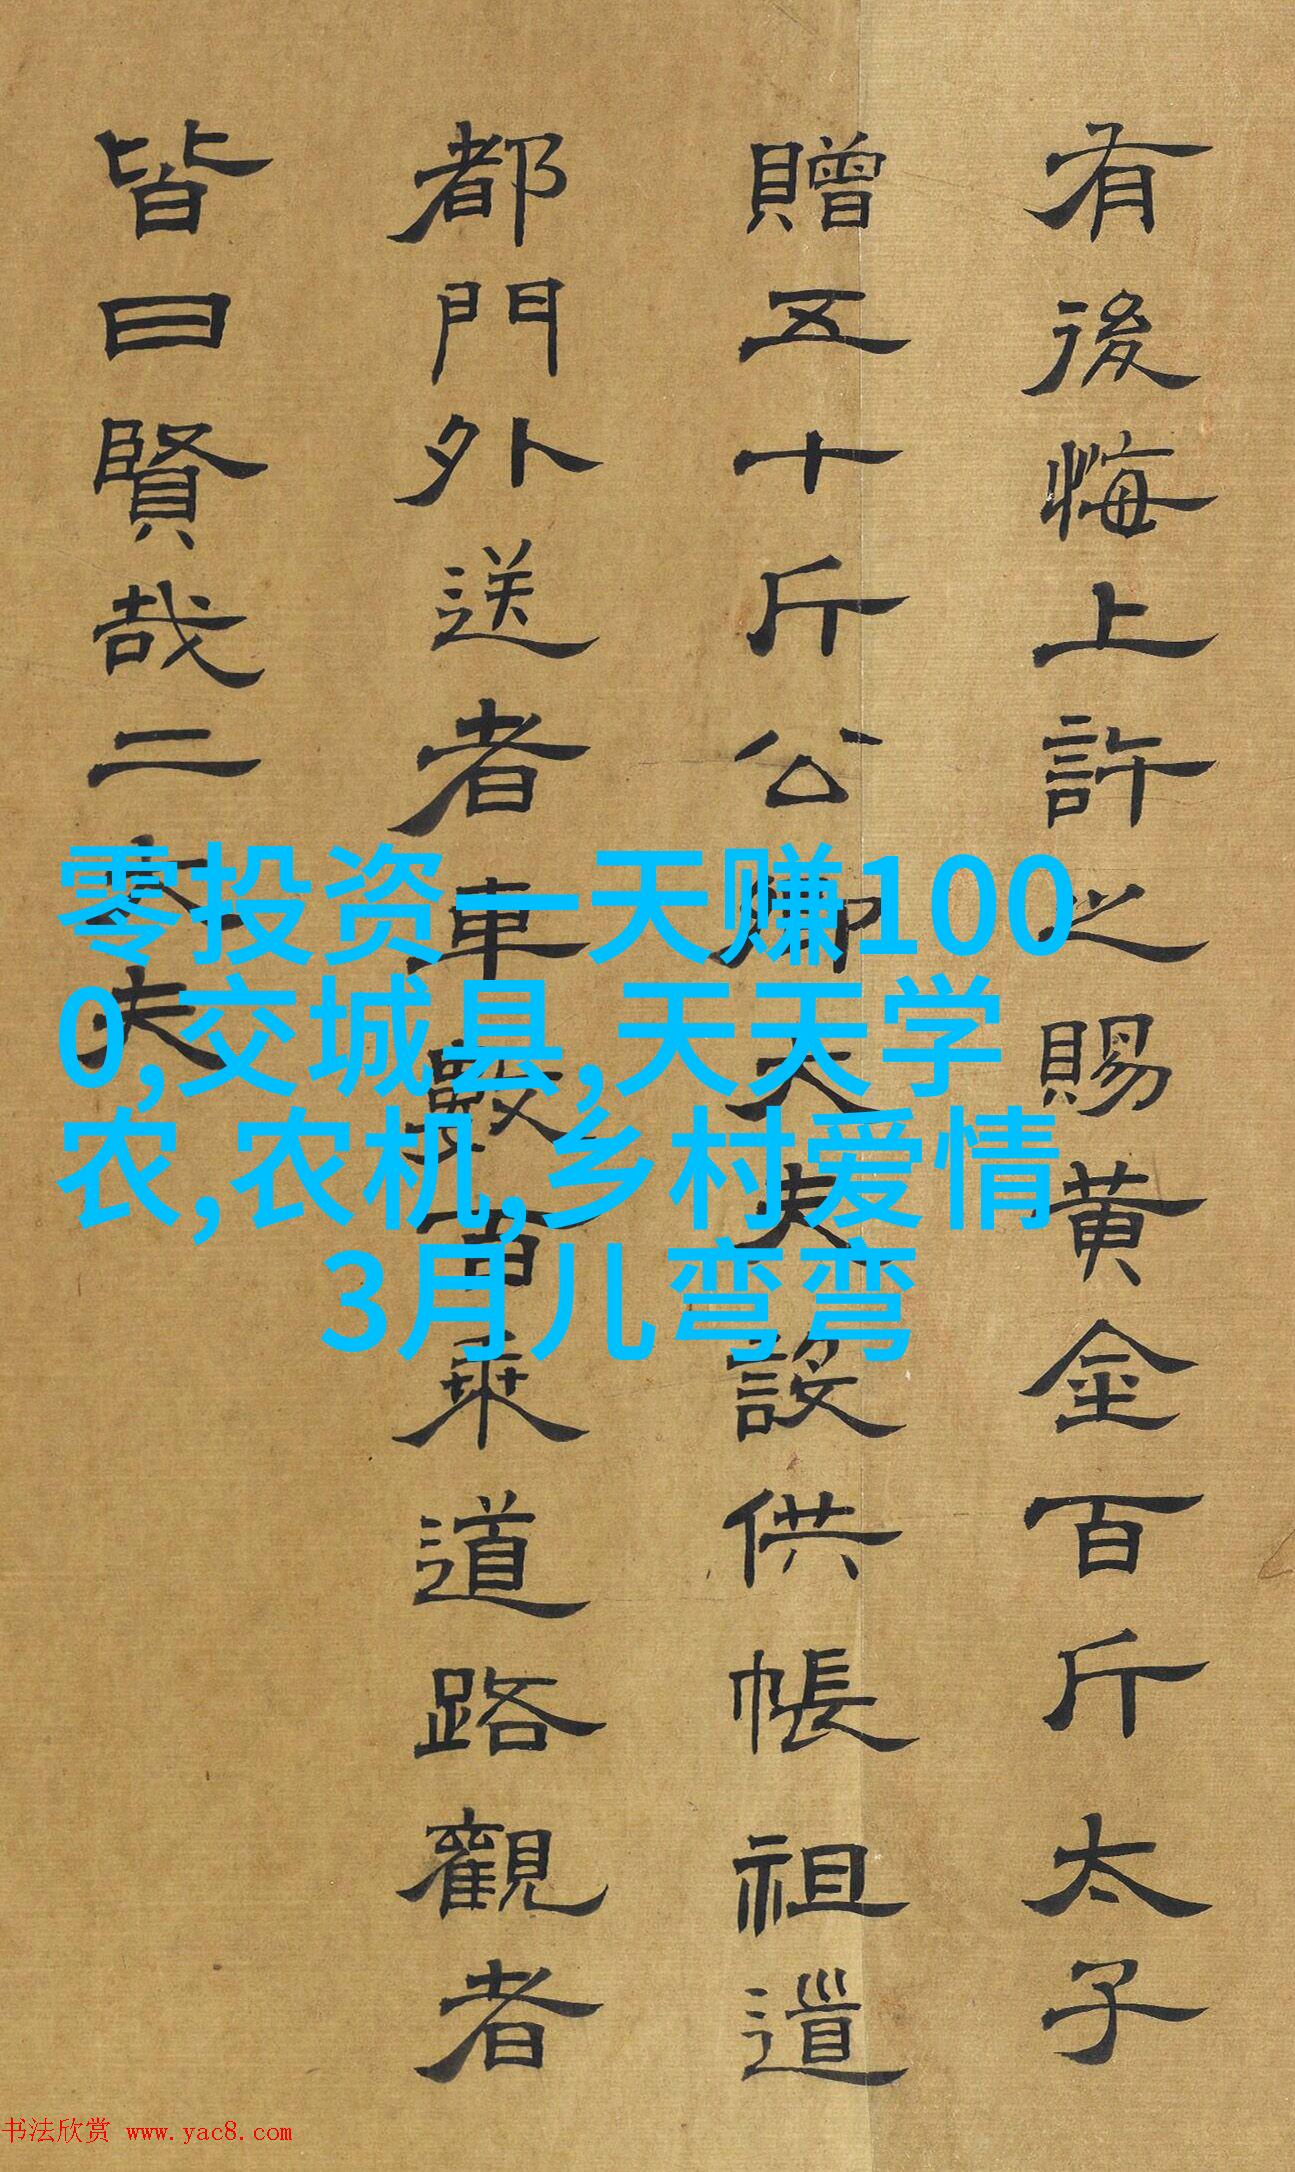 有後悔上許之賜黃金百斤太子
贈五十斤公卿大夫設供帳祖道
都門外送者車數百乘道路觀者
皆曰賢哉二大夫
零投资一天赚100
0,交城县,天天学
农,农机,乡村爱情
3月儿弯弯
书法欣赏 www.yac8.com